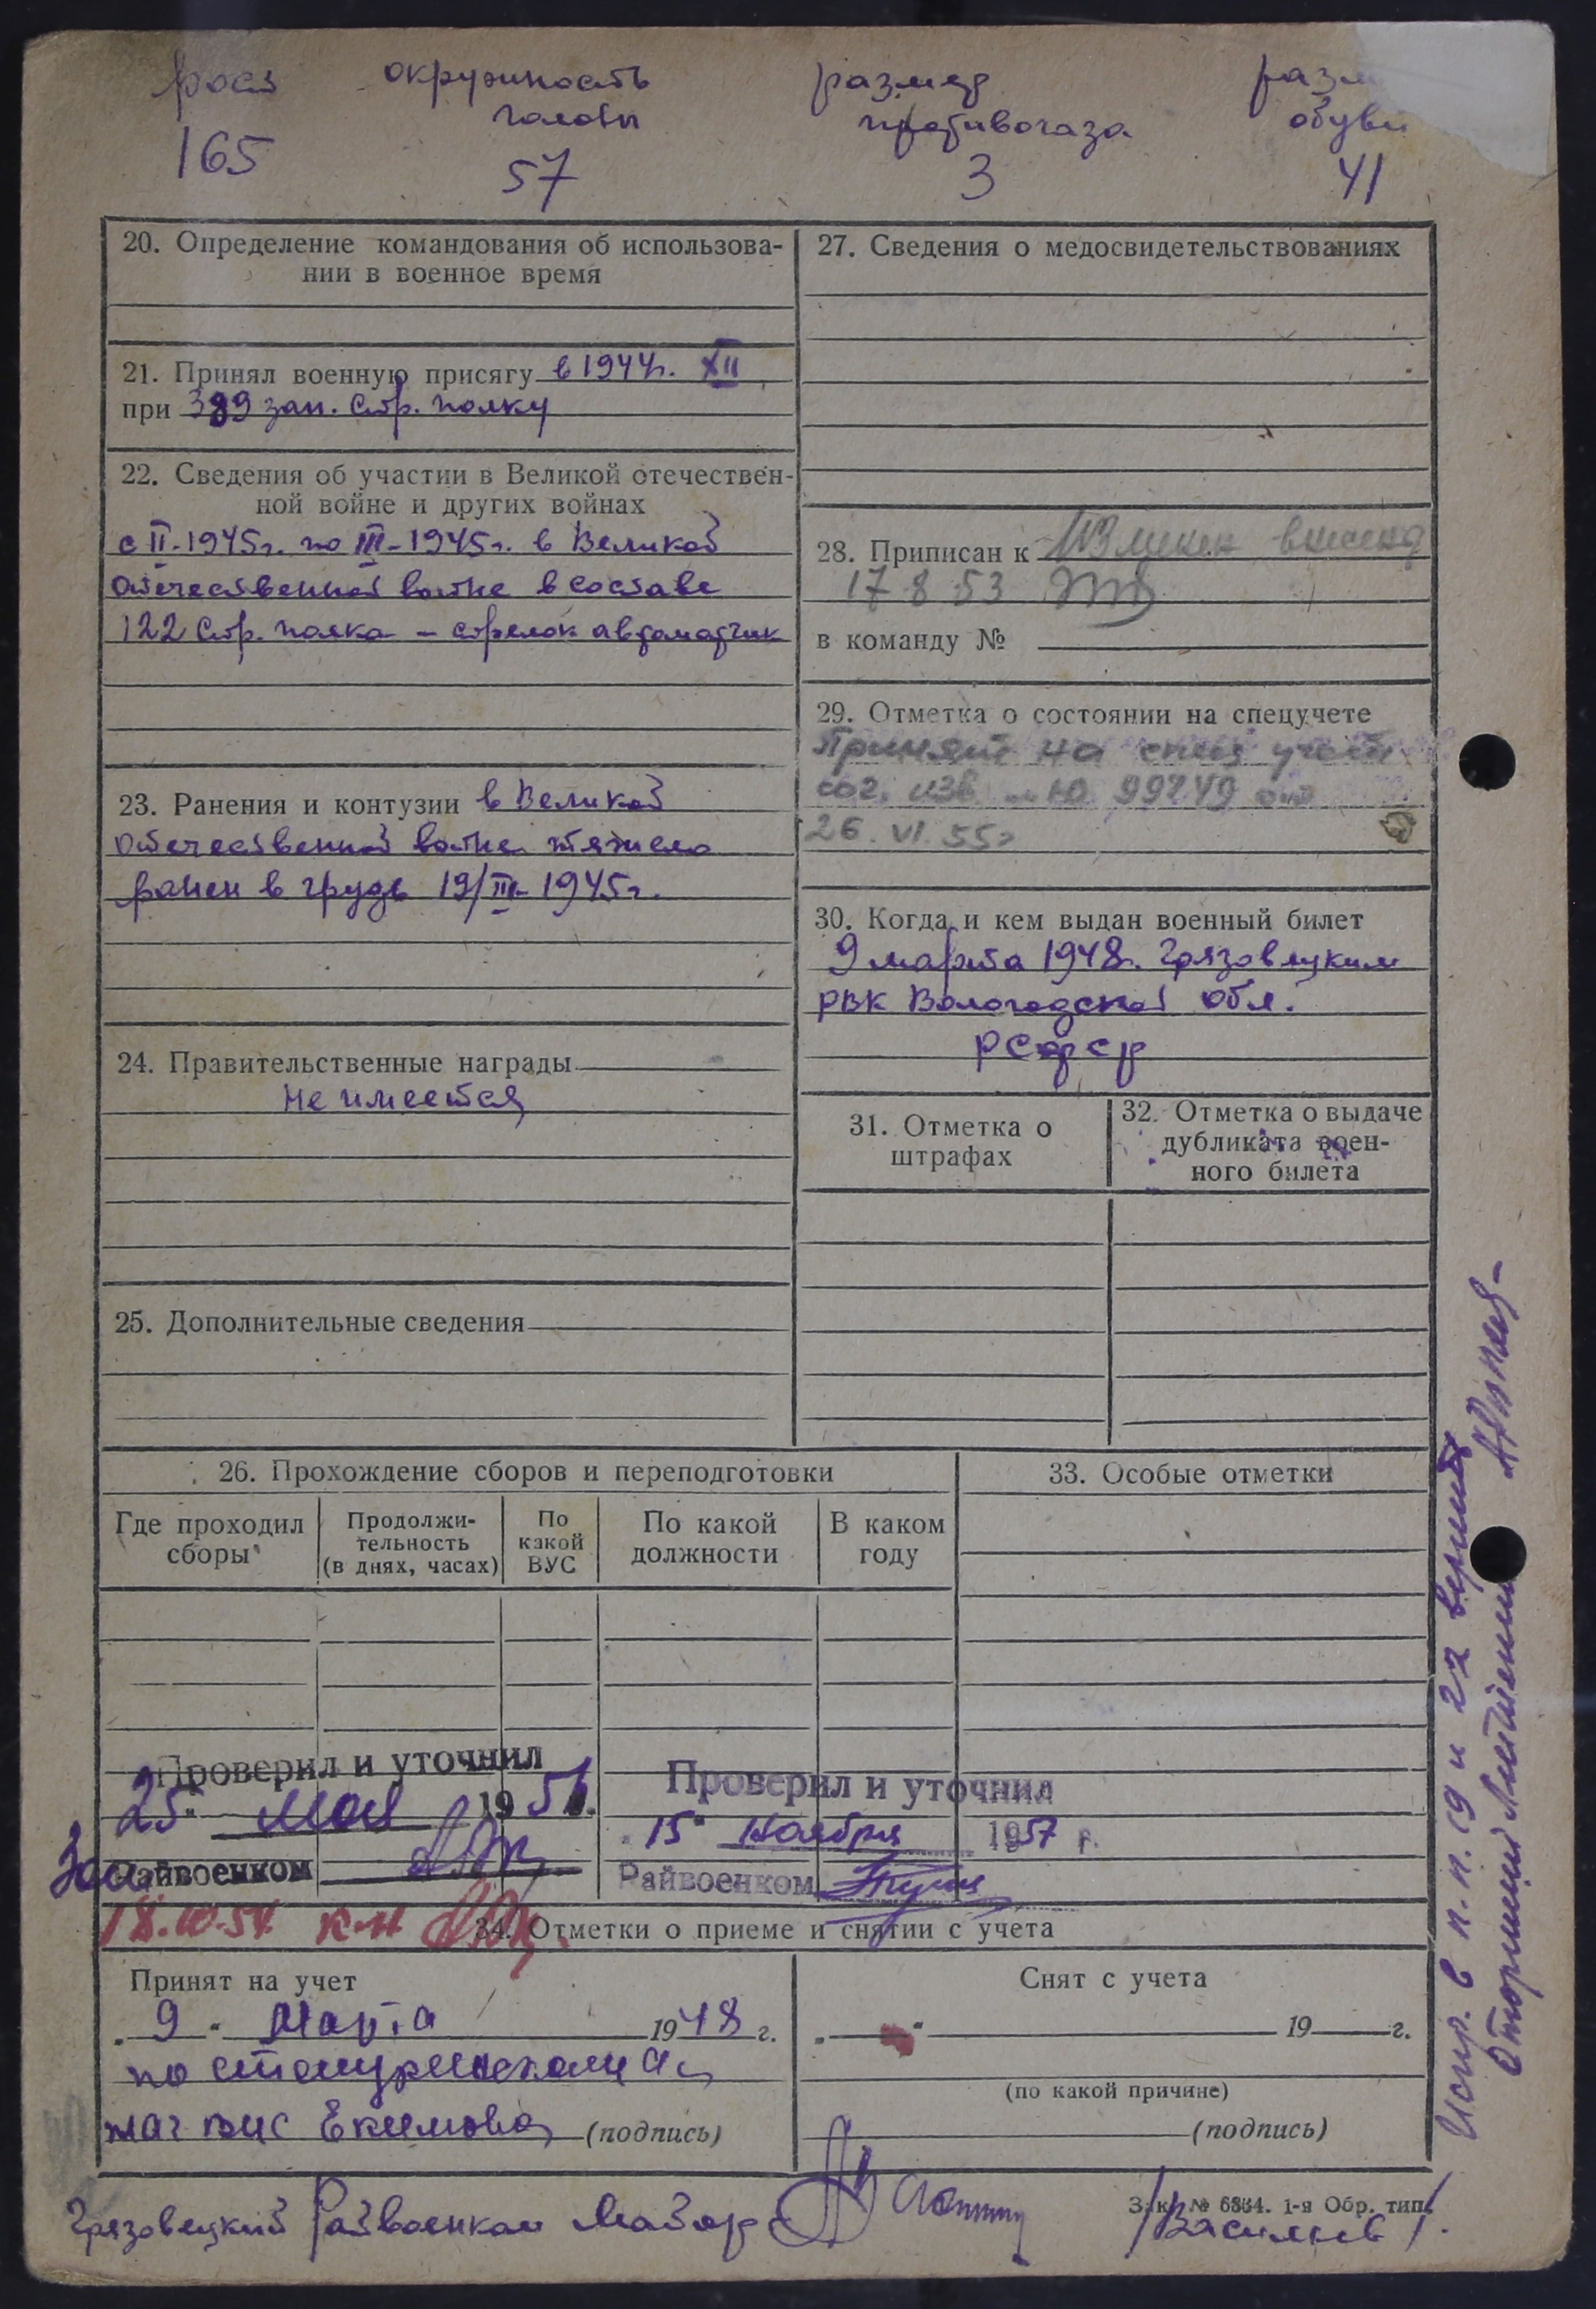 рост окружность размер разм
головы противогаза обуви
165 57 3 41
20. Определение командования об использова-
нии в военное время
21. Принял военную присягу в 1944г. XII
при 389 зап. стр. полку
22. Сведения об участии в Великой отечествен-
ной войне и других войнах
с II-1945г. по III-1945г. в Великой
отечественной войне в составе
122 стр. полка - стрелок автоматчик
23. Ранения и контузии в Великой
отечественной войне тяжело
ранен в грудь 19/III-1945г.
24. Правительственные награды
не имеется
25. Дополнительные сведения
27. Сведения о медосвидетельствованиях
28. Приписан к
17 8 53
в команду №
29. Отметка о состоянии на спецучете
Принят на спец учет
сог. изв № 99749 от
26. VI. 55г
30. Когда и кем выдан военный билет
9 марта 1948г. Грязовецким
РВК Вологодской обл.
РСФСР
31. Отметка о
штрафах
32. Отметка о выдаче
дубликата воен-
ного билета
26. Прохождение сборов и переподготовки
Где проходил
сборы
Продолжи-
тельность
(в днях, часах)
По
какой
ВУС
По какой
должности
В каком
году
33. Особые отметки
Проверил и уточнил
25 мая 1951.
Зам Райвоенком
Проверил и уточнил
"15" Ноября 1957 г.
Райвоенком
18.10.54 к-н
34. Отметки о приеме и снятии с учета
Принят на учет
"9" Марта 1948 г.
Екимова (подпись)
Снят с учета
" " 19 г.
(по какой причине)
(подпись)
Грязовецкий Райвоенком Майор /Васильев/.
Зак. № 6364. 1-я Обр. тип.
Испр. в п.п. 19 и 22 верить
Лейтенант